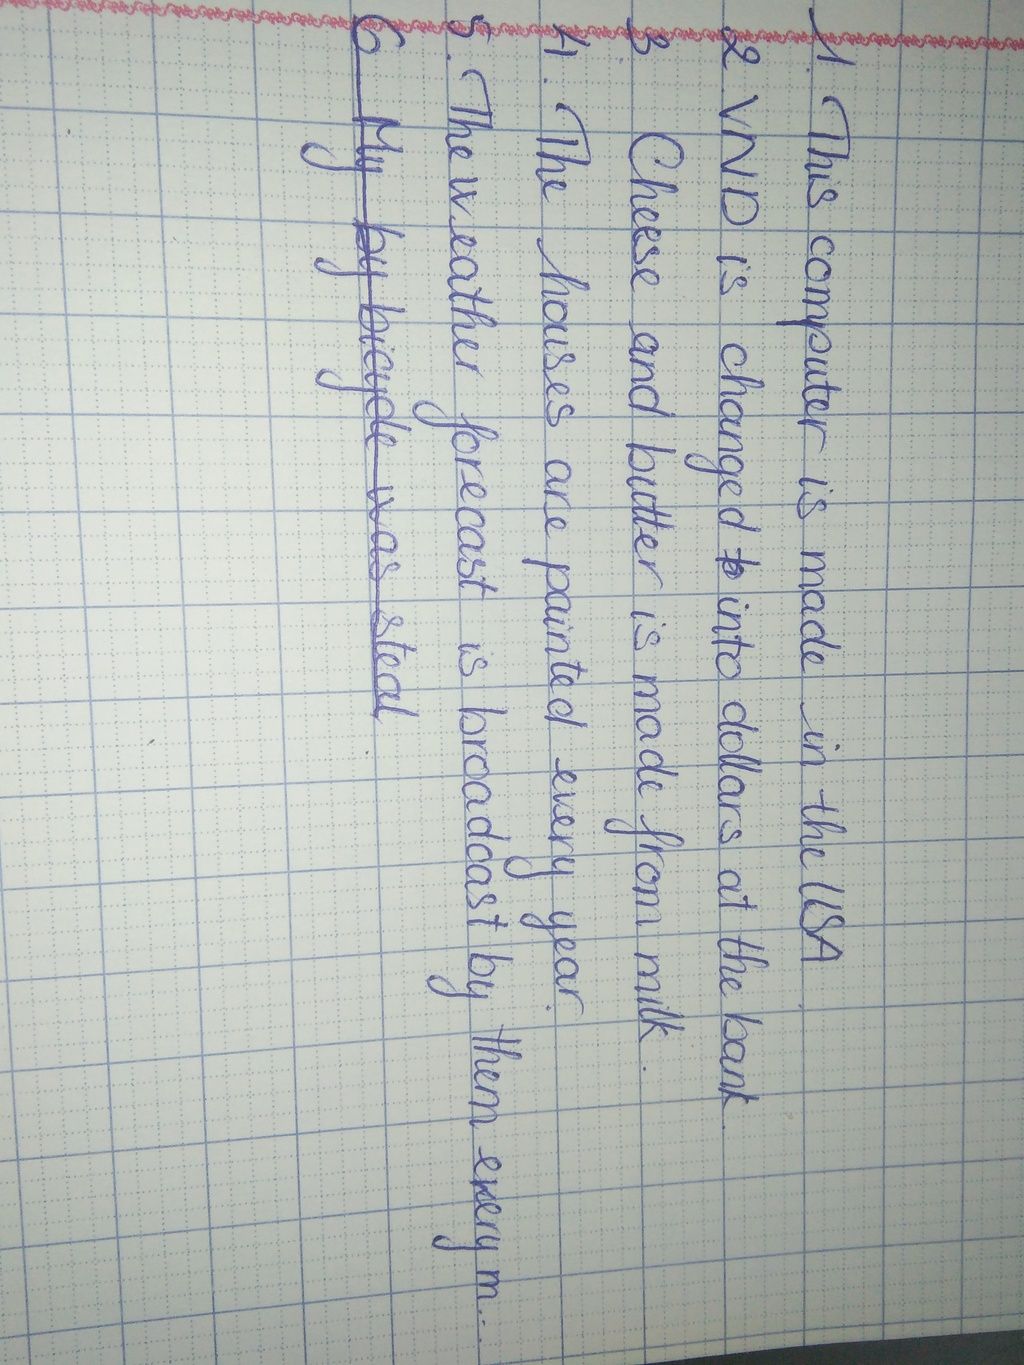 1. This computer is made in the USA.
2 VND is changed into dollars at the bank.
3. Cheese and butter is made from milk.
4. The houses are painted every year.
5. The weather forecast is broadcast by them every m...
6 My by bicycle was steal